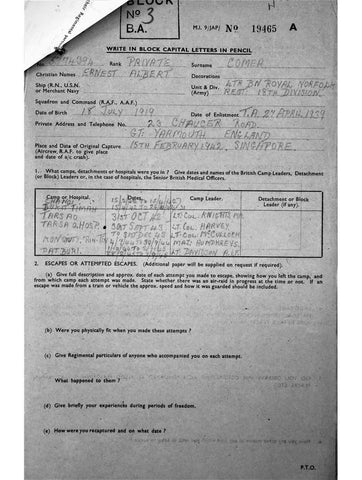 BLOCK
No 3
B.A.
M.I. 9/JAP/ No 19465 A
WRITE IN BLOCK CAPITAL LETTERS IN PENCIL
Rank PRIVATE Surname COMER
Christian Names ERNEST ALBERT Decorations
Ship (R.N., U.S.N. or Merchant Navy) Unit & Div. (Army) 4TH BN ROYAL NORFOLK
REGT. 18TH DIVISION.
Squadron and Command (R.A.F., A.A.F.)
Date of Birth 18 JULY 1919 Date of Enlistment T.A. 27 APRIL 1939
Private Address and Telephone No. 23 CHAUCER ROAD.
GT. YARMOUTH ENGLAND
Place and Date of Original Capture 15TH FEBRUARY 1942, SINGAPORE.
(Aircrew, R.A.F. to give place
and date of a/c crash).
1. What camps, detachments or hospitals were you in? Give dates and names of the British Camp Leaders, Detachment
(or Block) Leaders or, in the case of hospitals, the Senior British Medical Officers.
Camp or Hospital. Dates. Camp Leader. Detachment or Block
Leader (if any).
CHANGI
BUKIT TIMAH
TARSAO 31ST OCT 42 LT. COL. KNIGHTS
TARSAO HOSP. SEPT 43 LT. COL. HARVEY
LT. COL. MCCULLOCH
MAJ. HUMPHREYS
LT. DAVIDSON
2. ESCAPES OR ATTEMPTED ESCAPES. (Additional paper will be supplied on request if required).
(a) Give full description and approx. date of each attempt you made to escape, showing how you left the camp, and
from which camp each attempt was made. State whether there was an air-raid in progress at the time or not. If an
escape was made from a train or vehicle the approx. speed and how it was guarded should be included.
(b) Were you physically fit when you made these attempts?
(c) Give Regimental particulars of anyone who accompanied you on each attempt.
What happened to them?
(d) Give briefly your experiences during periods of freedom.
(e) How were you recaptured and on what date?
P.T.O.